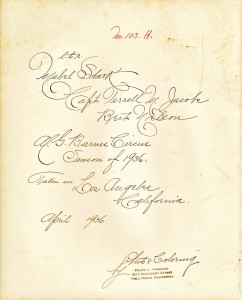 No. 103. H.
L. to R.
Mabel Stark
Capt. Terrell M. Jacobs
Bert Nelson
Al. G. Barnes Circus
Season of 1936.
Taken in Los Angeles
California.
April 1936
Photo & Coloring
HOLLYWOOD, CALIFORNIA